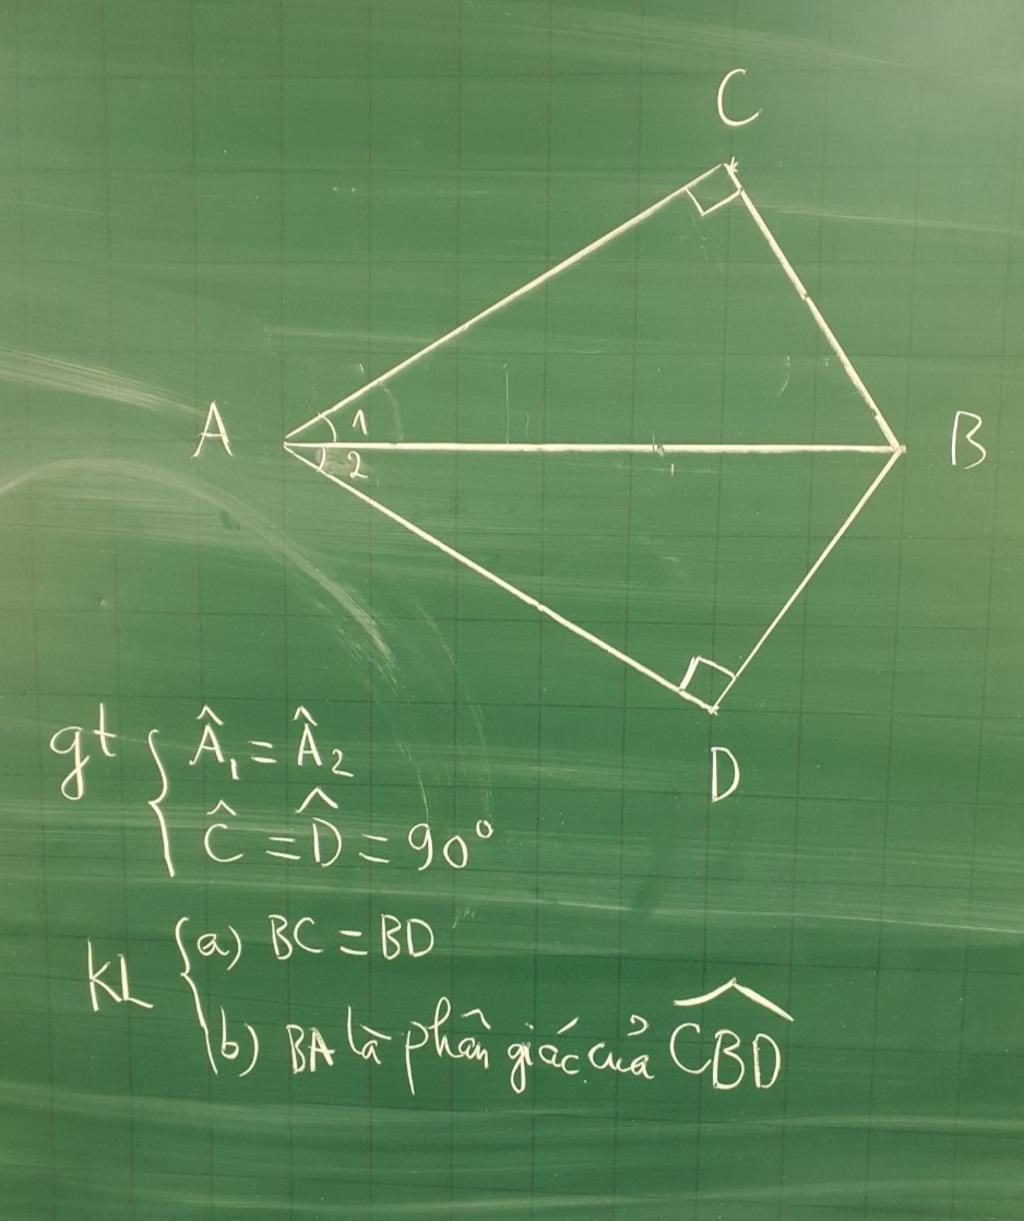 C
A
1
2
B
D
gt { Â₁ = Â₂
Ĉ = D̂ = 90°
KL { a) BC = BD
b) BA là phân giác của \widehat{CBD}